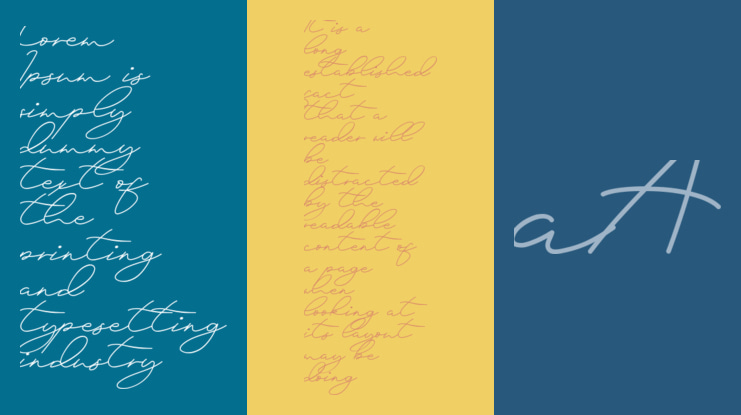 Lorem
Ipsum is
simply
dummy
text of
the
printing
and
typesetting
industry
It is a
long
established
fact
that a
reader will
be
distracted
by the
readable
content of
a page
when
looking at
its layout
may be
doing
aA